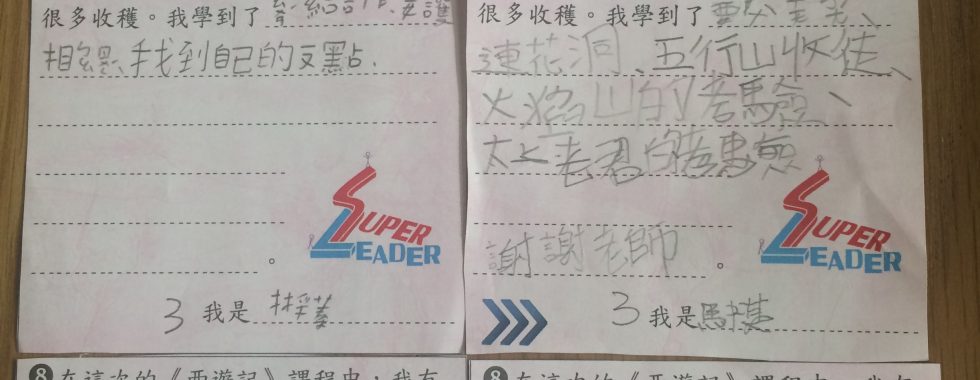 很多收穫。我學到了
相
找到自己的
點、
SUPER
LEADER
。
3 我是 林
很多收穫。我學到了
連花洞、五行山收徒、
火焰山的考驗、
太上老君的考
謝謝老師 。
SUPER
LEADER
3 我是馬
8 在這次的《西遊記》課程中，我有
8 在這次的《西遊記》課程中，我有